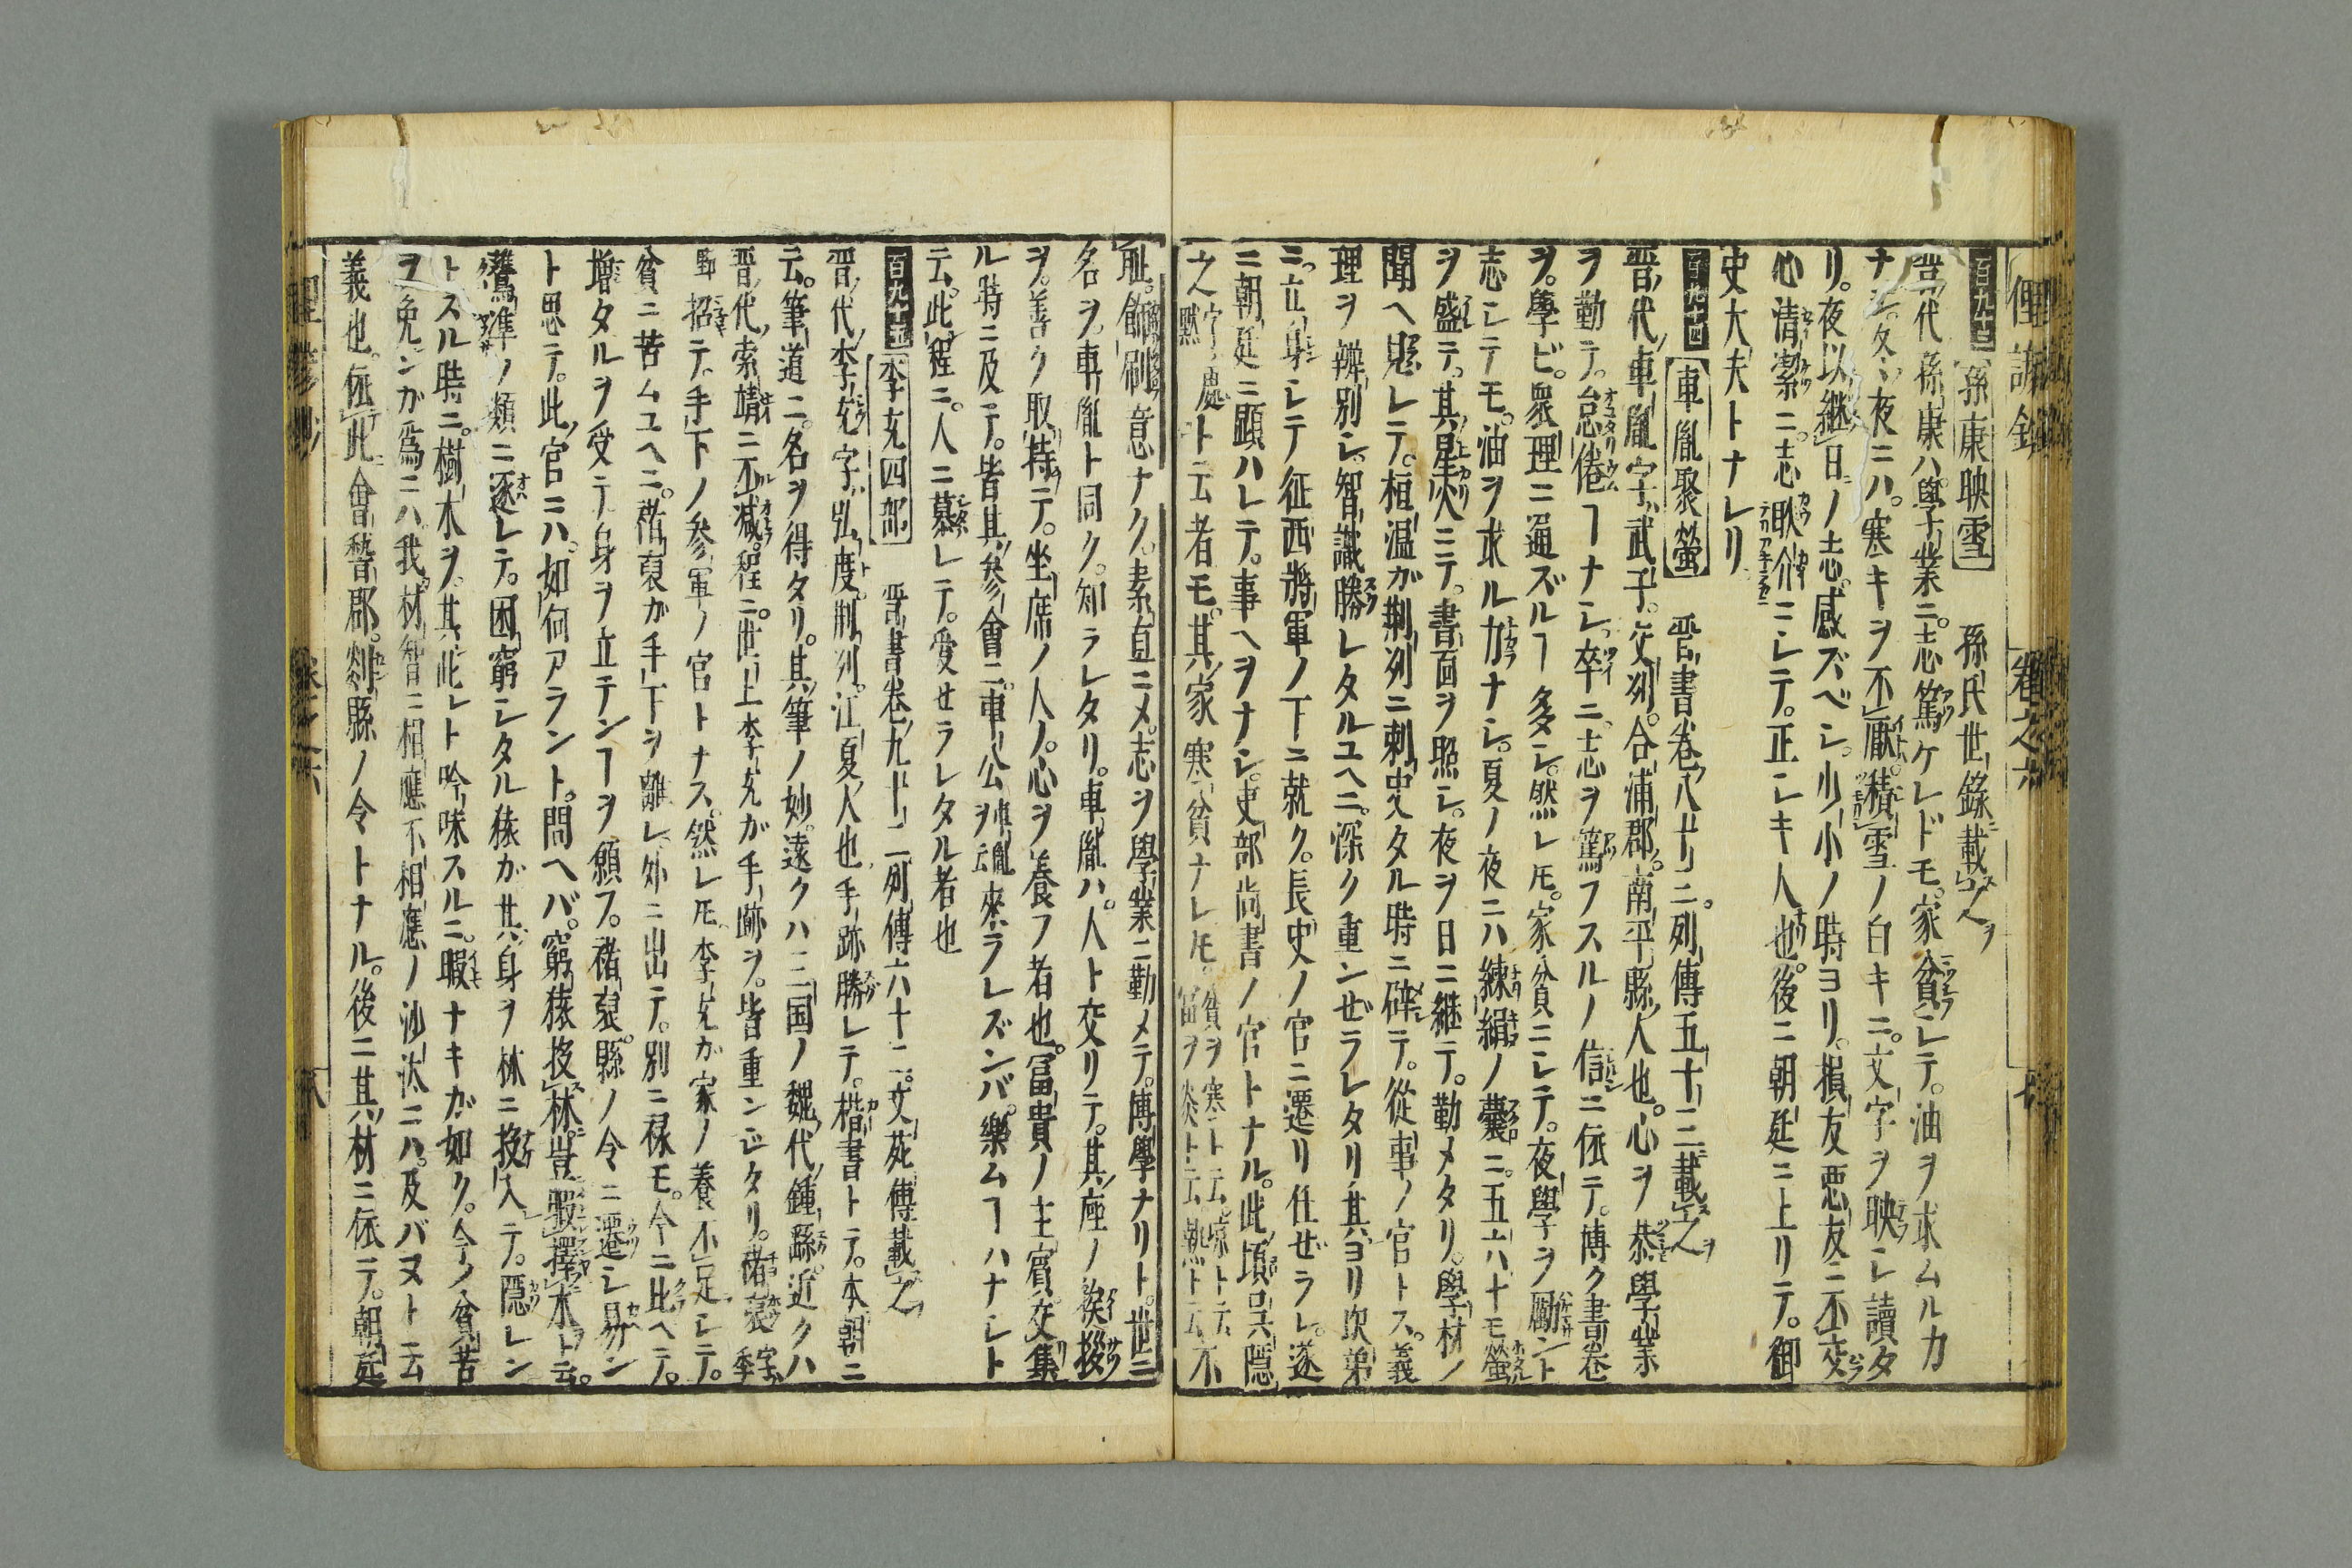 俚諺鈔 卷之六 七
百九十三 孫康映雪 孫氏世錄載之ヲ
晋代孫康ハ學業ニ志篤ケレドモ家貧シテ油ヲ求ムルカ
ナシ冬ノ夜ニハ寒キヲ不厭積雪ノ白キニ文字ヲ映シ讀タ
リ夜以継日ノ志感ズベシ少小ノ時ヨリ損友悪友ニ不交
心清潔ニ志耿介ニシテ正シキ人也後ニ朝廷ニ上リテ御
史大夫トナレリ
百九十四 車胤聚螢 晋書卷八十三列傳五十三載之ヲ
晋代車胤字武子交州合浦郡南平縣人也心ヲ恭學業
ヲ勤テ怠倦ヿナシ卒ニ志ヲ篤フスルノ信ニ依テ博ク書卷
ヲ學ビ衆理ニ通ズルヿ多シ然レ𪜈家貧ニシテ夜學ヲ勵ント
志シテモ油ヲ求ル力ナシ夏ノ夜ニハ練絹ノ囊ニ五六十モ螢
ヲ盛テ其星火ニテ書面ヲ照シ夜ヲ日ニ継テ勤メタリ學材ノ
聞ヘ聡シテ桓温ガ荆州ニ刺史タル時ニ辟テ從事ノ官トス義
理ヲ辨別シ智識勝レタルユヘニ深ク重ンゼラレタリ其ヨリ次弟
ニ立身シテ征西將軍ノ下ニ就ク長史ノ官ニ遷リ仕ゼラレ遂
ニ朝廷ニ顯ハレテ事ヘヲナシ吏部尚書ノ官トナル此頃呉隱
之字ハ處黙ト云者モ其家寒貧ナレ𪜈貧ヲ寒ト云凉ト云富ヲ炎ト云熱ト云不
耻飾刷意ナク素直ニメ志ヲ學業ニ勤メテ博學ナリト世ニ
名ヲ車胤ト同ク知ラレタリ車胤ハ人ト交リテ其座ノ挨拶
ヲ善ク取持テ坐席ノ人ノ心ヲ養フ者也冨貴ノ主賓交集
ル時ニ及テ皆其參會ニ車公車胤ヲ云來ラレズンバ樂ムヿハナシト
云此程ニ人ニ慕レテ愛せラレタル者也
百九十五 李充四部 晋書卷九十二列傳六十二文苑傳載之ヲ
晋代李充字弘度荆州江夏人也手跡勝レテ楷書トテ本朝ニ
云筆道ニ名ヲ得タリ其筆ノ妙遠クハ三国ノ魏代鍾繇近クハ
晋代索靖ニ不減程ニ世上李充が手跡ヲ皆重ンじタリ褚裒字季
野招テ手下ノ參軍ノ官トナス然レ𪜈李充が家ノ養不足シテ
貧ニ苦ムユヘニ褚裒が手下ヲ離レ外ニ出テ別ニ禄モ今ニ比ヘテ
増タルヲ受テ身ヲ立テンヿヲ願フ褚裒縣ノ令ニ遷シ易ン
ト思テ此官ニハ如何アラント問ヘバ窮猿投林豈暇擇木ト云
鷹隼ノ類ニ逐レテ困窮シタル猿が其身ヲ林ニ投入テ隱レン
トスル時ニ樹木ヲ其此レト吟味スルニ暇ナキガ如ク今ノ貧苦
ヲ免ンが爲ニハ我材智ニ相應不相應ノ沙汰ニハ及バヌト云
義也依此會稽郡剡縣ノ令トナル後ニ其材ニ依テ朝廷
俚諺鈔 卷之六 八